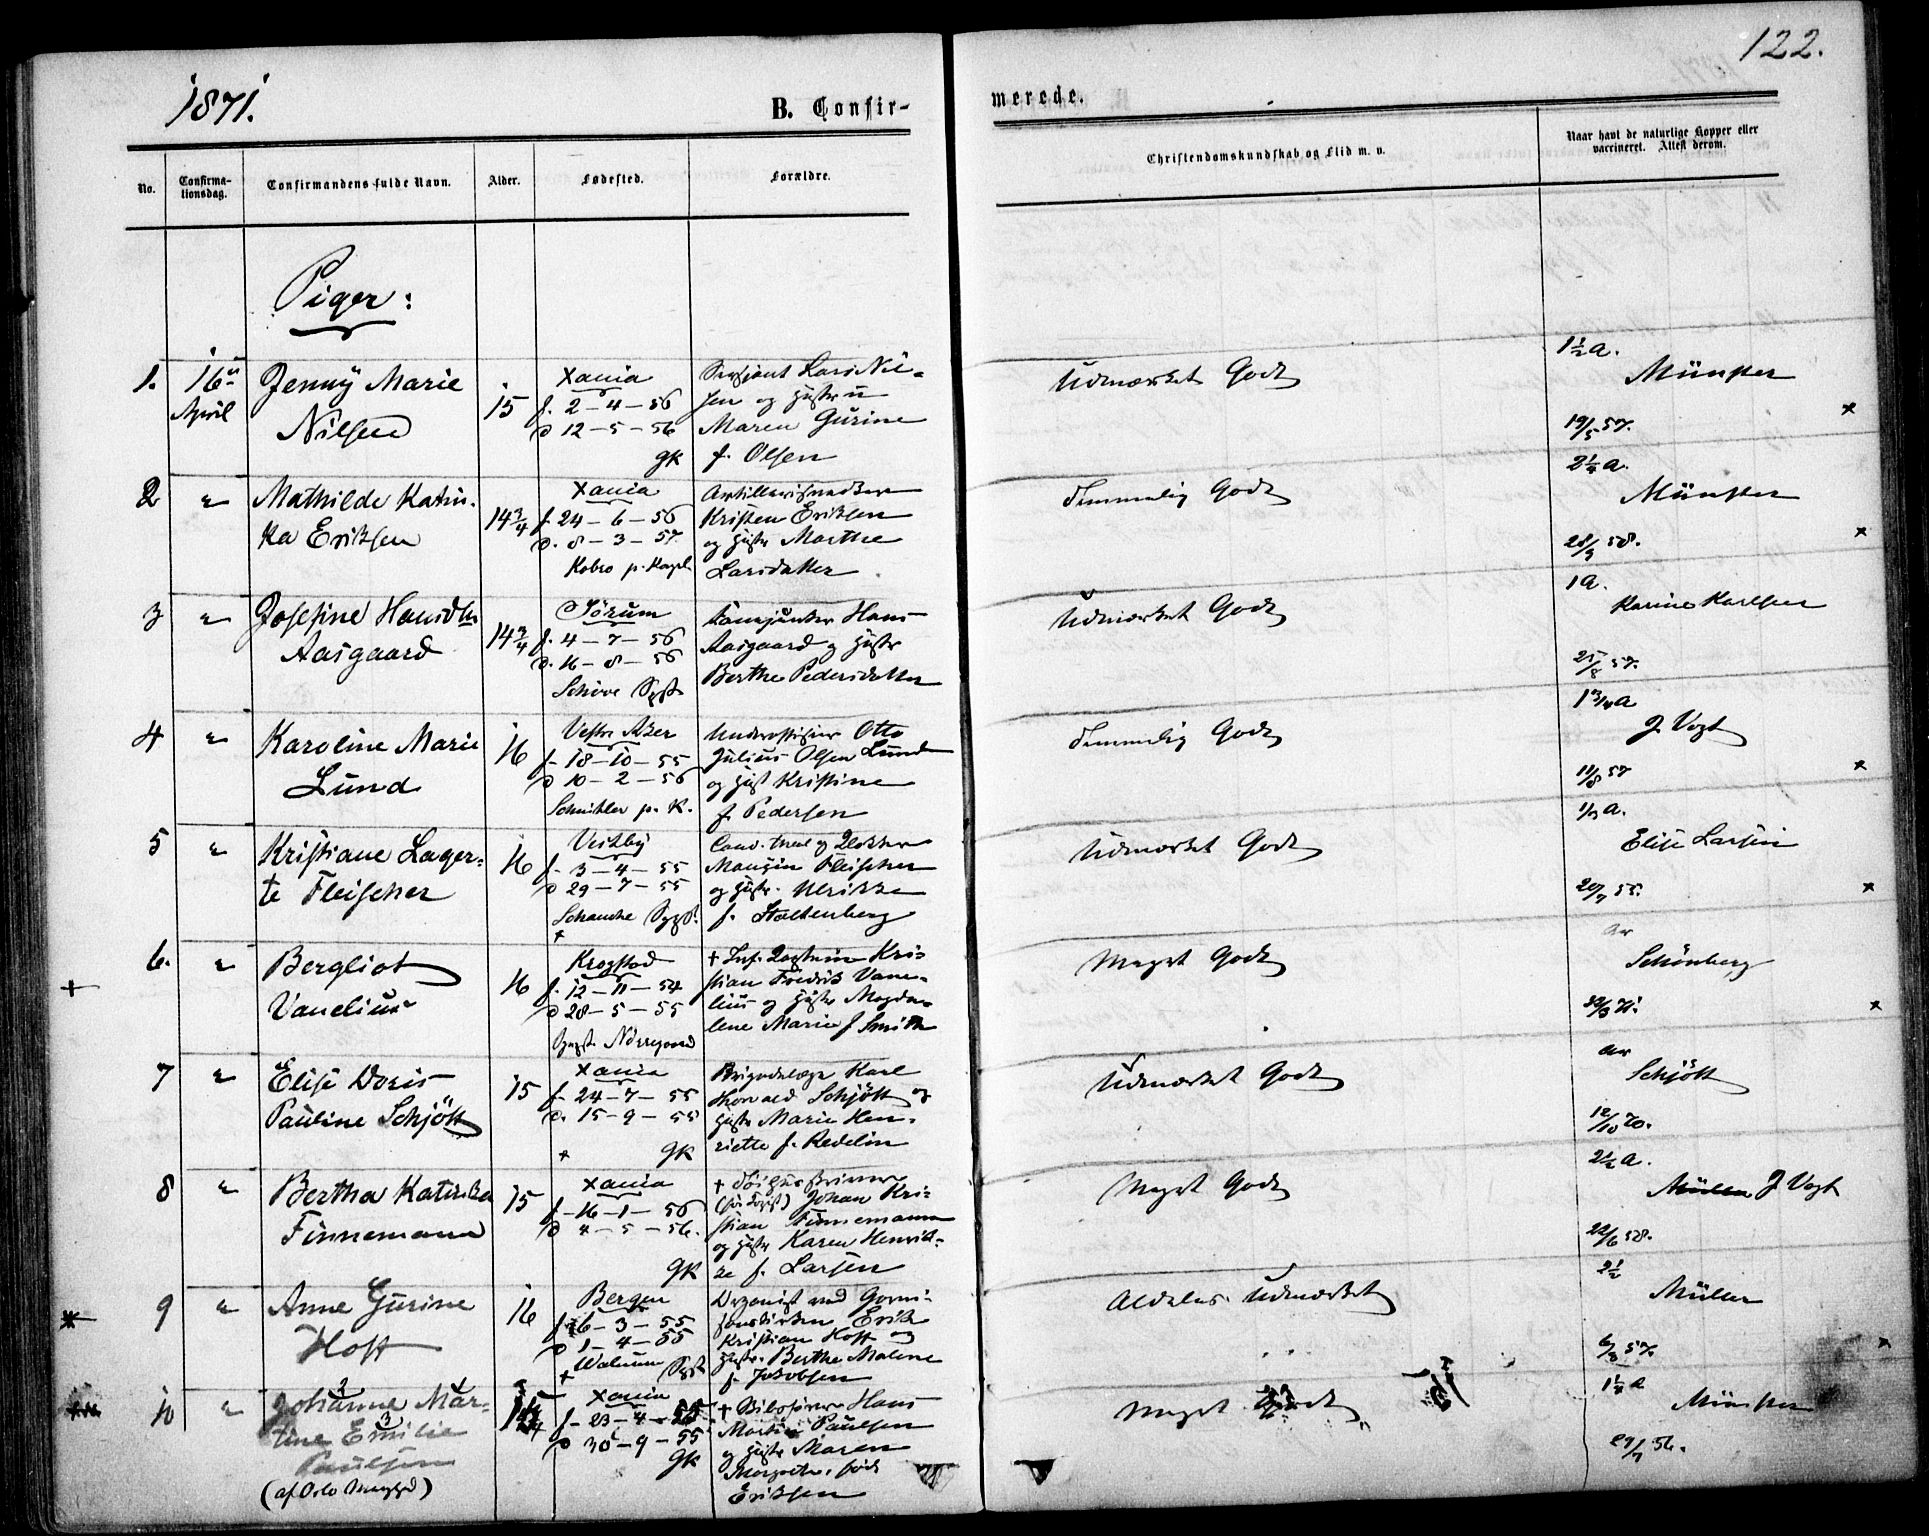 122.
1871.
B. Confir-
merede.
No.
Confirma-
tionsdag.
Confirmandens fulde Navn.
Alder.
Fødested.
Forældre.
Christendomskundskab og Flid m. v.
Naar havt de naturlige Kopper eller
vaccineret. Attest derom.
Piger:
1.
16
April
Jenny Marie
Nilsen
15
Xania
f. 2-4-56
d 12-5-56
gk
Sersjant Lars Nil-
sen og Hustru
Maren Gurine
f. Olsen
Udmærket Godt
1½ a.
Münster
19/5 57.
2
"
Mathilde Katin-
ka Eriksen
14¾
Xania
f. 24-6-56
d. 8-3-57
Kobro p. Kapl.
Kristen Eriksen
og Hustr Marthe
Larsdatter
Temmelig Godt
2¼ a.
Münster
28/9 58.
3
"
Josefine Hansdtr
Aasgaard
14¾
Sørum
f. 4-7-56
d. 16-8-56
Hans
Aasgaard og Hustr
Berthe Pedersdatter
Udmærket Godt
1 a.
Karine Karlsen
25/8 57.
4
"
Karoline Marie
Lund
16
Vestre Aker
f. 18-10-55
d 10-2-56
Schnitler p. K.
Underoffisier Otto
Julius Olsen Lund
og Hust Kristine
f. Pedersen
Temmelig Godt
1 3/4 a
J. Vogt
11/8 57
5
"
Kristiane Lager-
te Fleischer
16
Vestby
f. 3-4-55
d 29-7-55
Schanche Sgpr.
Cand. theol og Klokker
Fleischer
og Hustr. Ulrikke
f. Stoltenberg
Udmærket Godt
Elise Larsen
20/7 55.
6.
"
Bergliot
Vanelius
16
Krogstad
f. 12-11-54
d 28-5-55
Sgpr. Nørregaard
+ Inf. Kaptein Kri-
stian Fredrik Vane-
lius og Hustr Magda-
lene Marie f Smith
Meget Godt
ar
Schönberg
7
"
Elise Doris
Pauline Schjött
15
Xania
f. 24-7-55
d. 15-9-55
gk
Brigadelæge Karl
Thorvald Schjött og
Hustr Marie Hen-
riette f. Redelin
Udmærket Godt
ar
Schjött
12/10 70.
8
"
Bertha Katinka
Finnemann
15
Xania
f. 16-1-56
d 4-5-56.
gk
Johan Kri-
stian Finnemann
og Hustr Karen Henrik-
ke f. Larsen
Meget Godt
2½ a.
J Vogt
22/6 58.
9
"
Anne Gurine
Hoff
16
Bergen
f. 6-3-55
d 1-4-55
Walnum Sgpr
Organist ved Garni-
sonskirken Erik
Kristian Hoff og
Hustr. Berthe Malene
f. Jakobsen
Aldeles Udmærket
2½
Müller
6/8 57.
10
"
Johanne Mar-
tine Emilie
Paulsen
(af Oslo Menighed)
Xania
f. 23-4-55
d 30-9-55
gk
+ Hans
Martin Paulsen
og Hustr Maren
Margrethe født
Eriksen
Meget Godt
1¼ a
Münster
56.